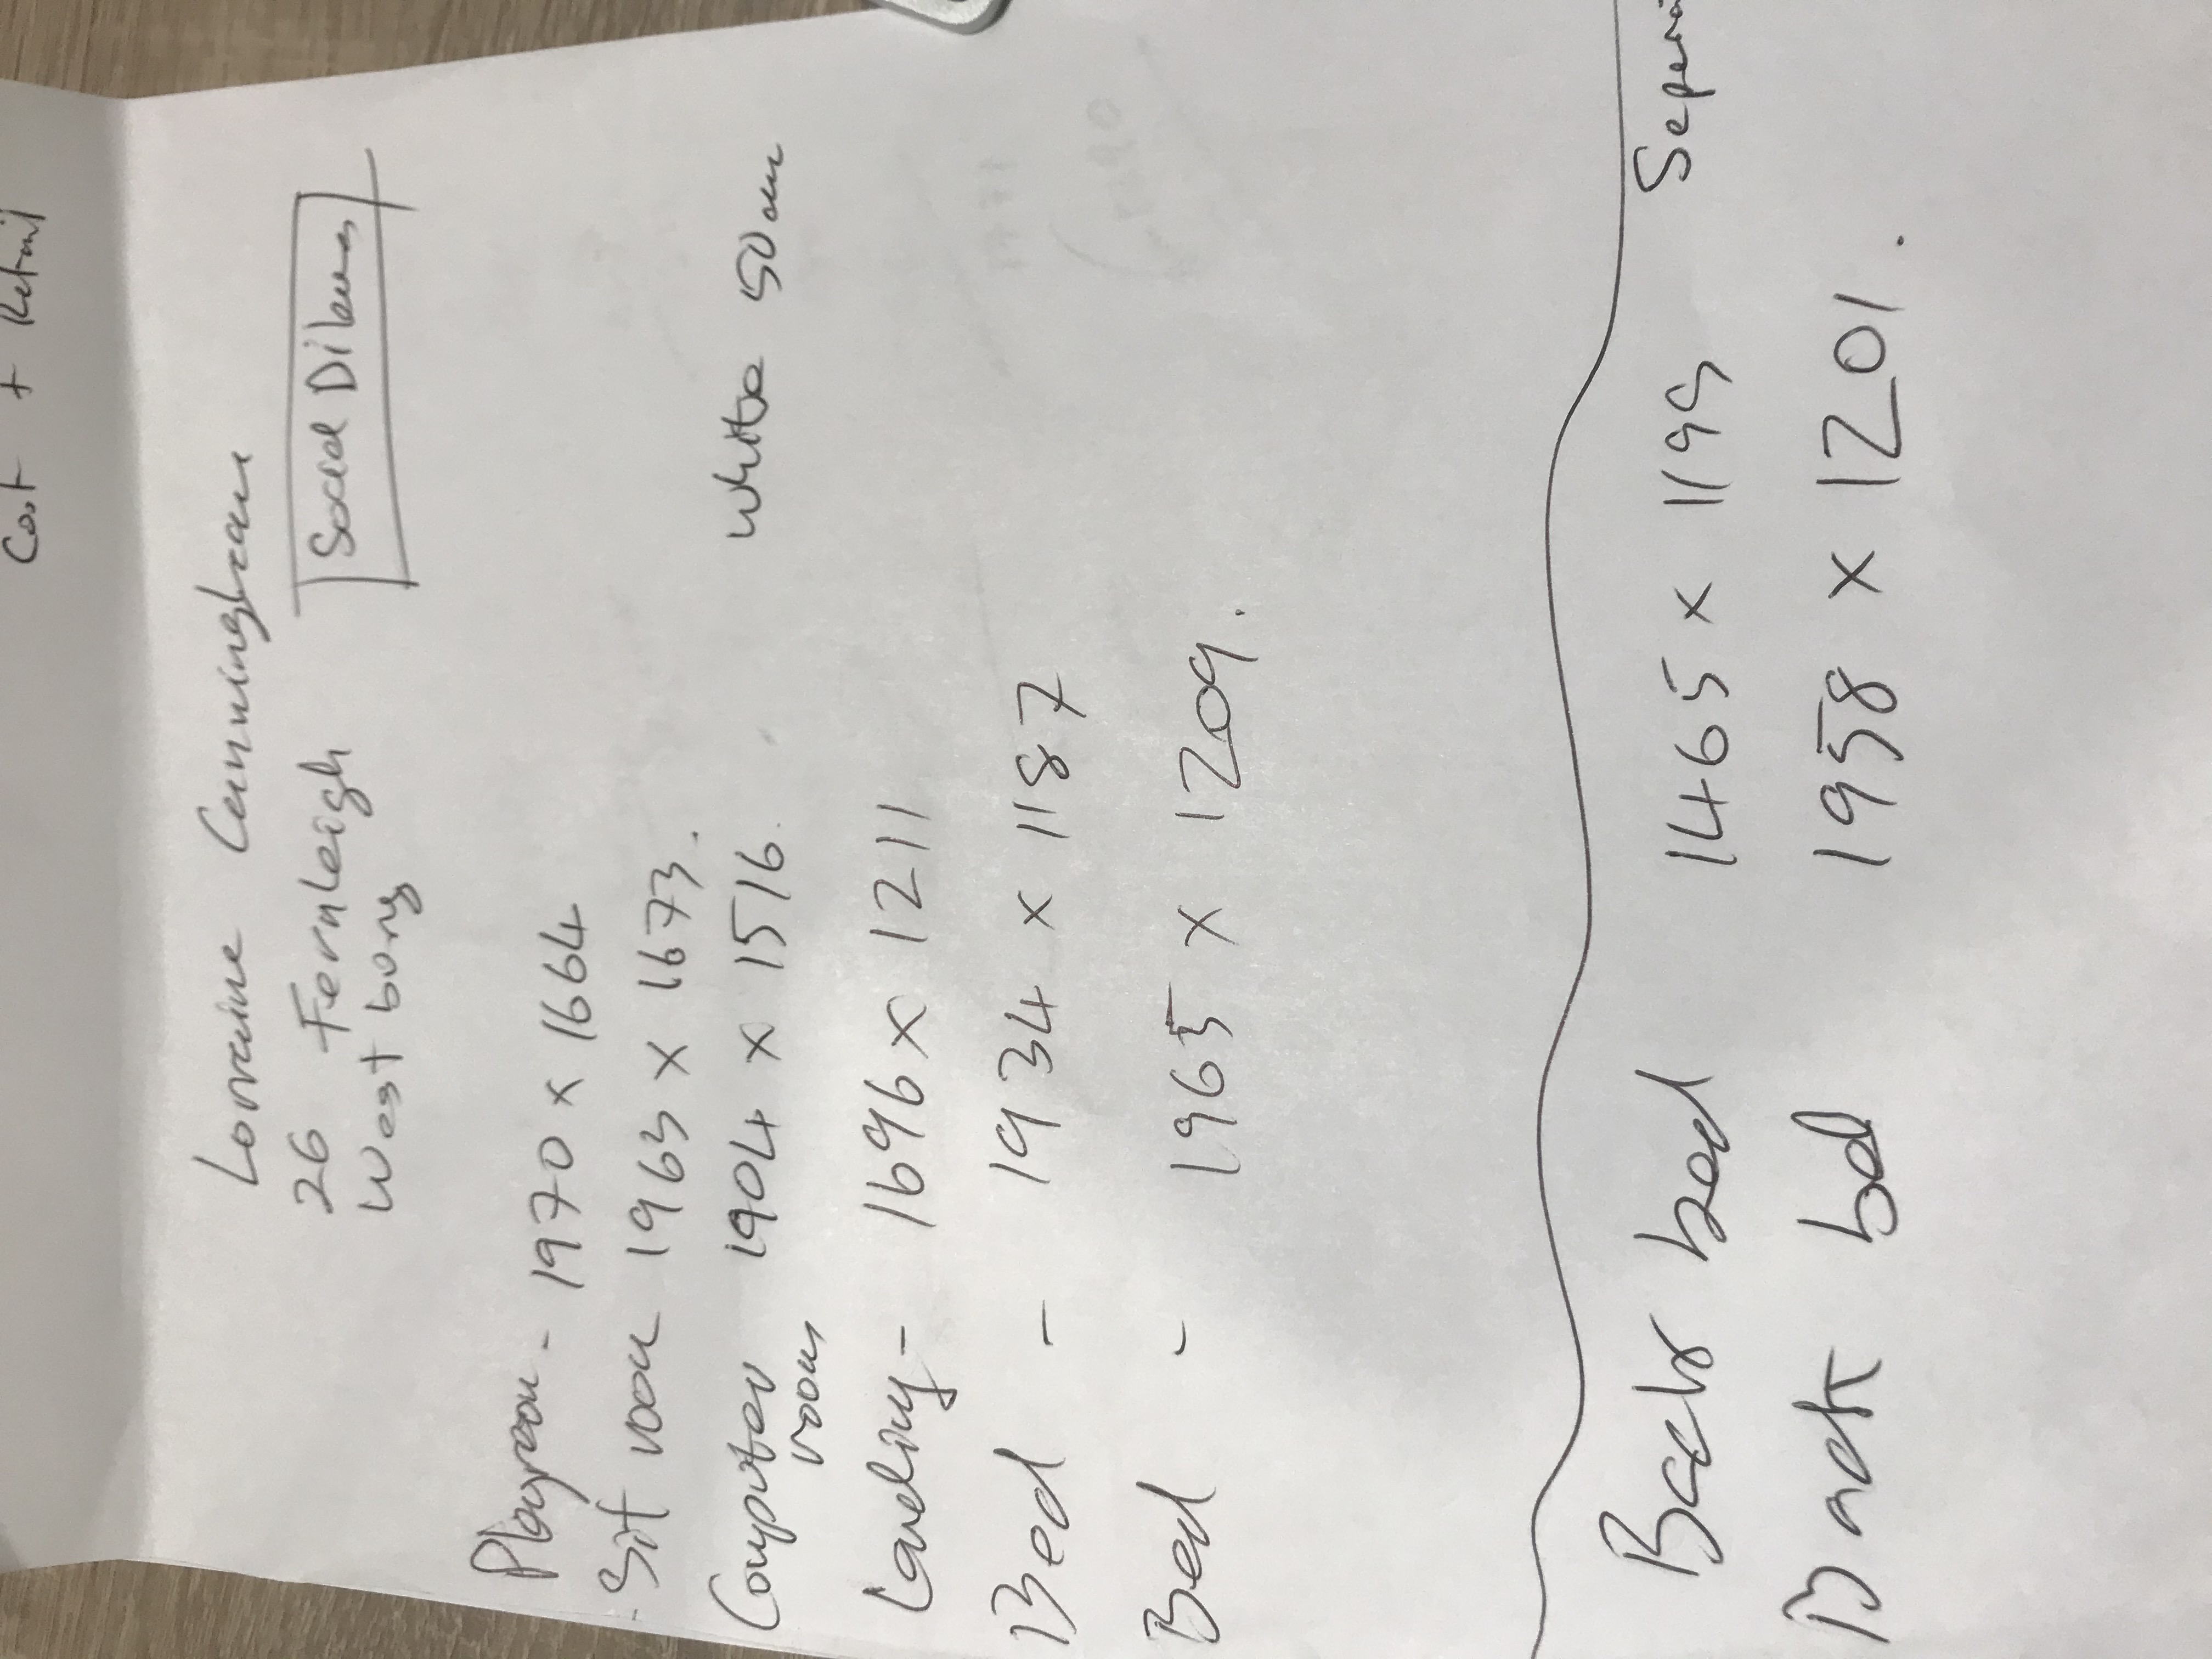 Cost + Retail
Lorraine Cunningham
26 Fernleigh
West bong
Playroom - 1970 x 1664
Sit room 1963 x 1673.
Computer room 1904 x 1516. White 50mm
Landing - 1696 x 1211
Bed - 1934 x 1187
Bed - 1965 x 1209.
Back bed 1465 x 1199
Back bed 1958 x 1201.